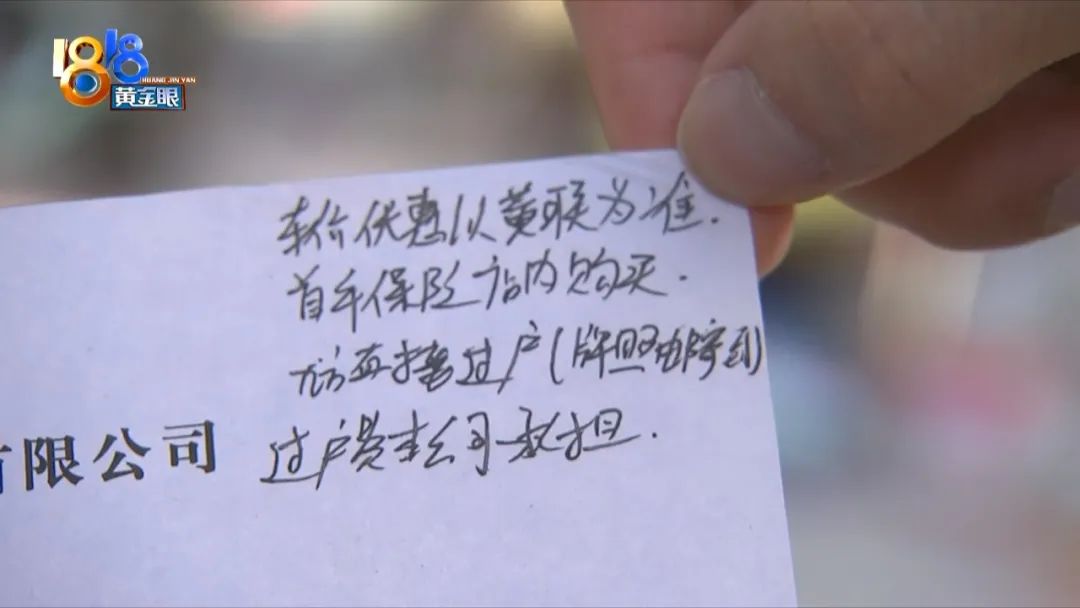 1818
HUANG JIN YAN
黄金眼
车价优惠以黄联为准.
首年保险店内购买.
直接过户(牌照
有限公司
过户费本公司承担.